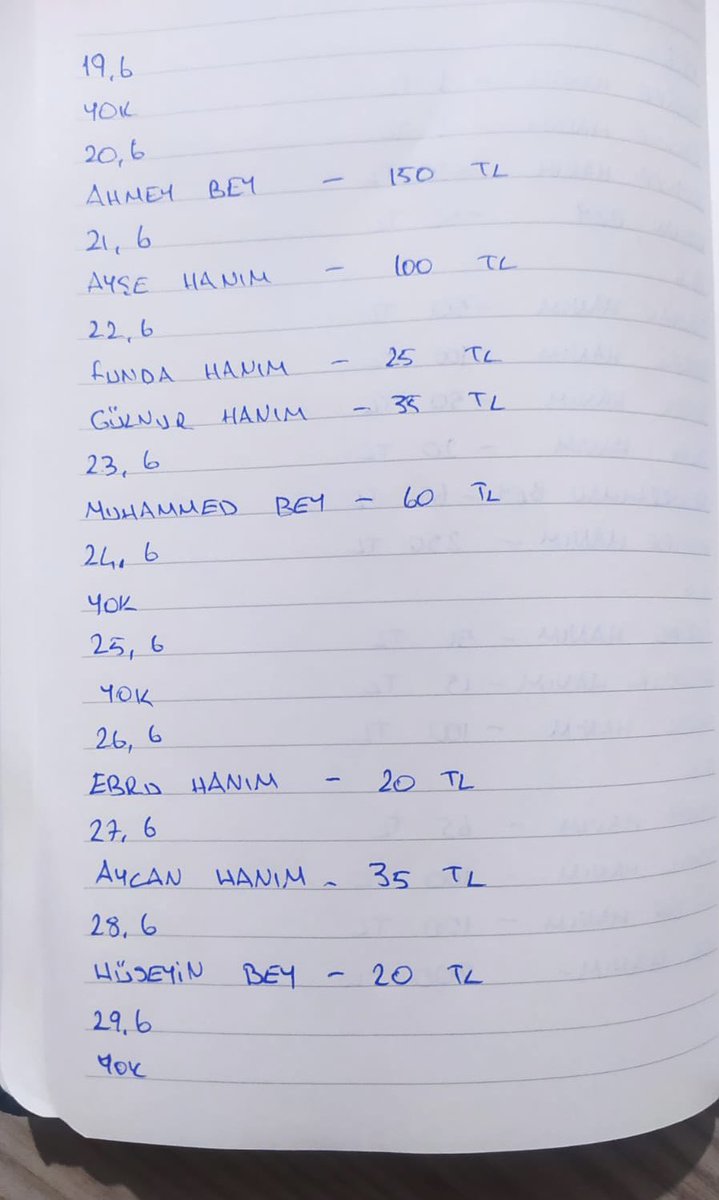 19,6
YOK
20,6
AHMEY BEY - 150 TL
21,6
AYŞE HANIM - 100 TL
22,6
FUNDA HANIM - 25 TL
GÜLNUR HANIM - 35 TL
23,6
MUHAMMED BEY - 60 TL
24,6
YOK
25,6
YOK
26,6
EBRU HANIM - 20 TL
27,6
AYCAN HANIM - 35 TL
28,6
HÜSEYİN BEY - 20 TL
29,6
YOK